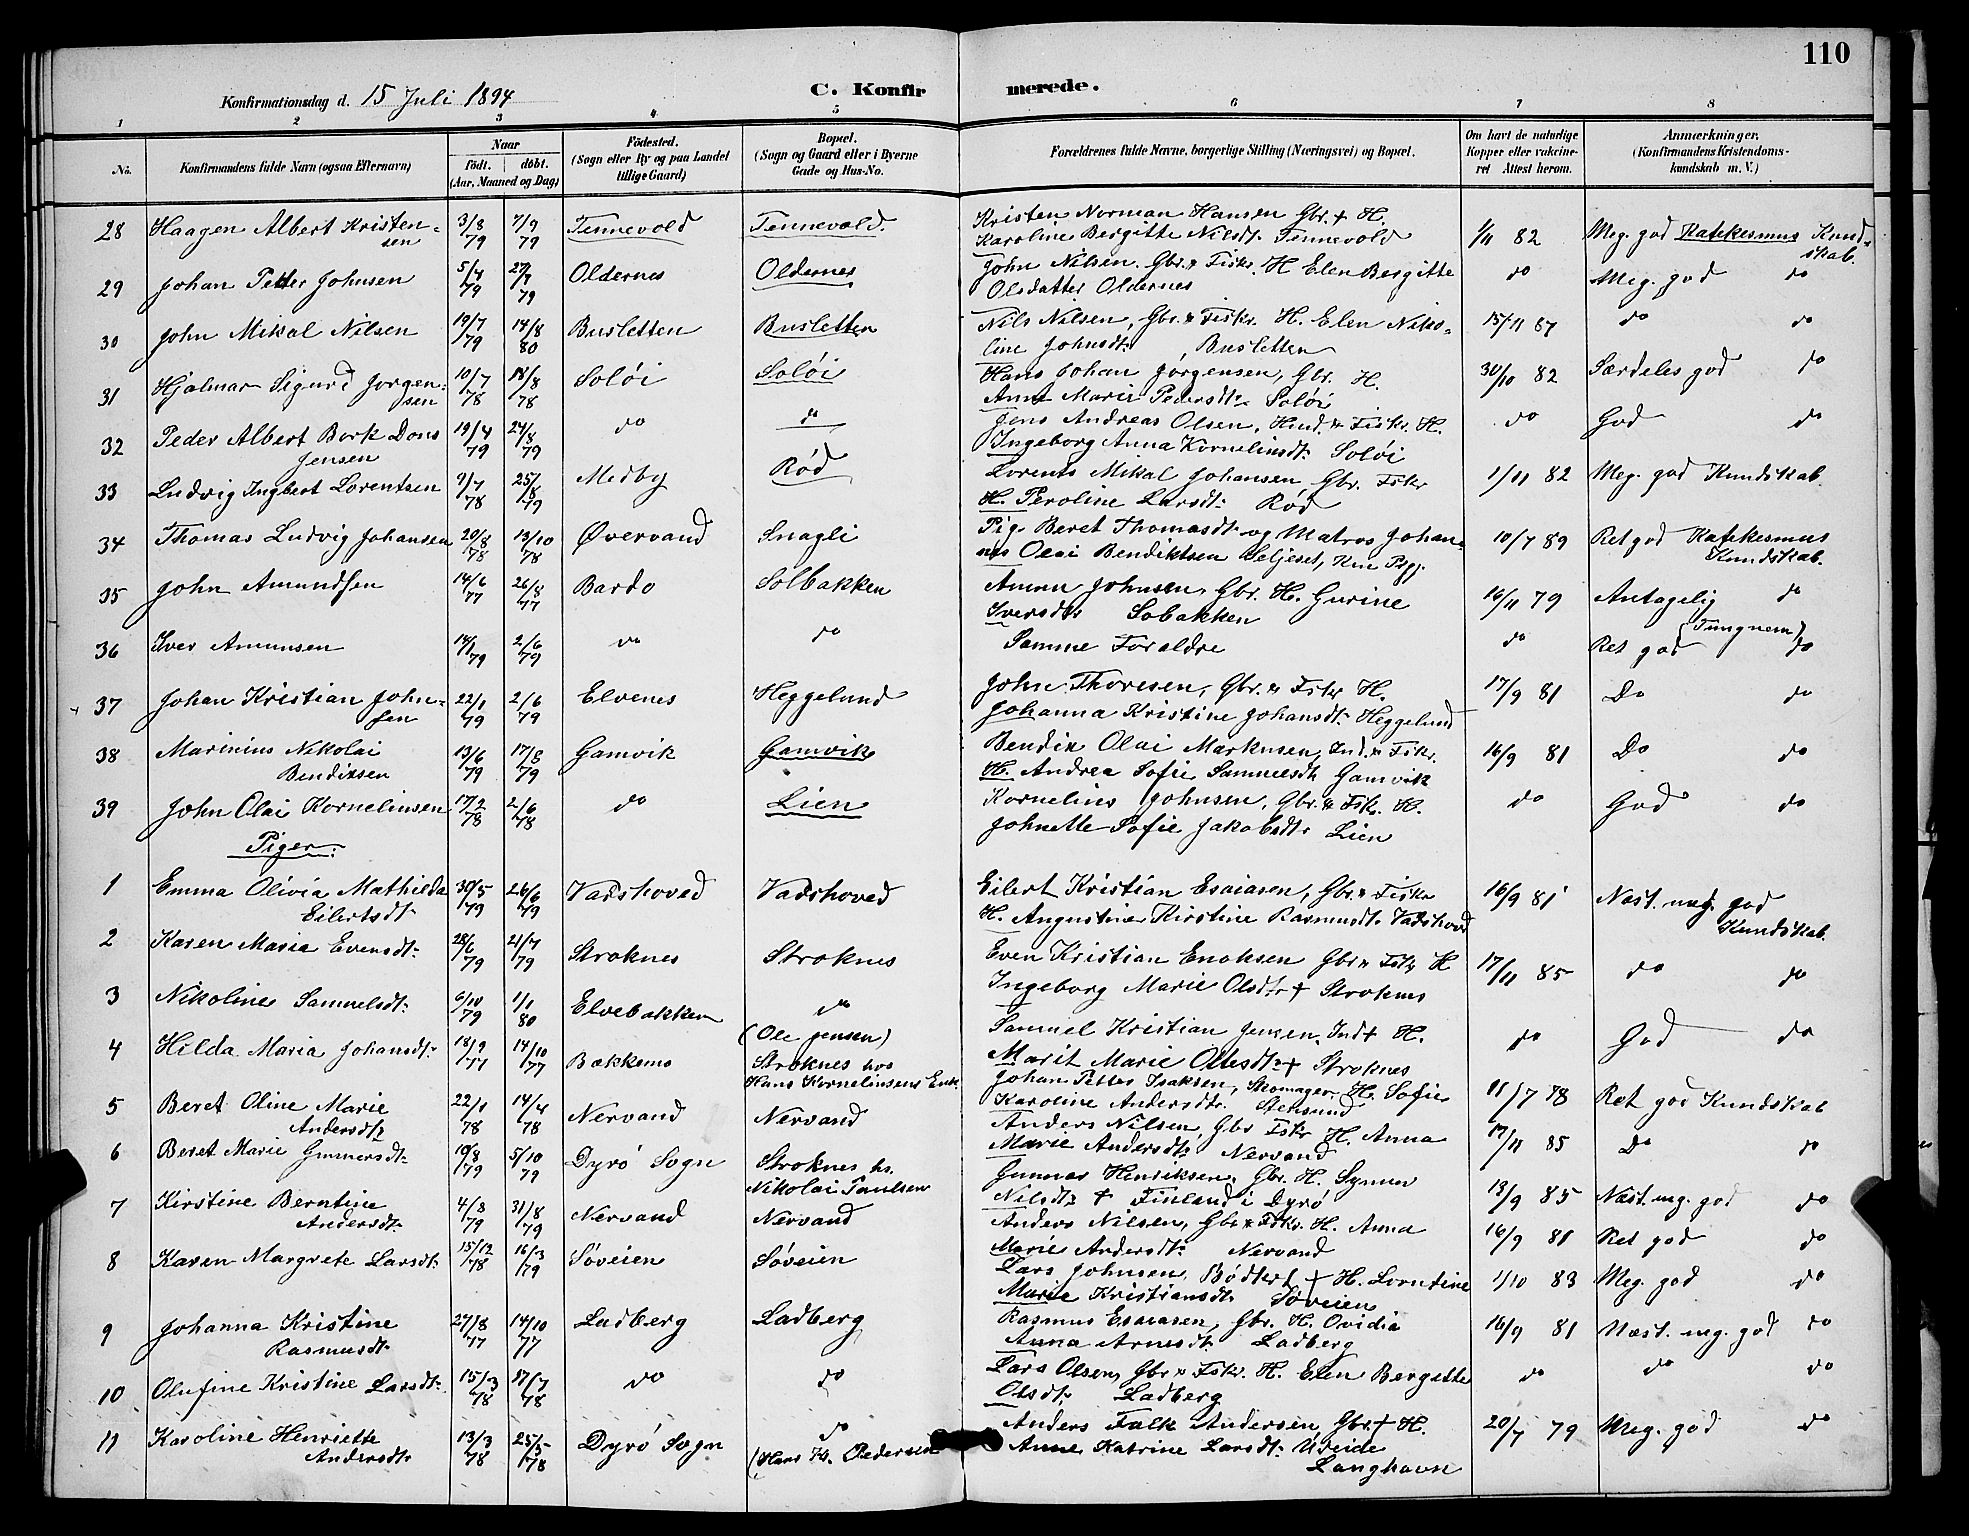 110
Konfirmationsdag d. 15 Juli 1894 C. Konfir merede.
1 2 3 4 5 6 7 8
No. Konfirmandens fulde Navn (ogsaa Efternavn) Naar födt. döbt. (Aar, Maaned og Dag) Födested. (Sogn eller By og paa Landet tillige Gaard) Bopæl. (Sogn og Gaard eller i Byerne Gade og Hus-No. Forældrenes fulde Navne, borgerlige Stilling (Næringsvei) og Bopæl. Om havt de naturlige Kopper eller vakcineret Attest herom. Anmærkninger. (Konfirmandens Kristendomskundskab m. V.)
28 Haagen Albert Kristensen 3/8 79 7/9 79 Tennevold Tennevold. Kristen Norman Hansen Gbr. + H. Karoline Bergitte Nilsdt. Tennevold 1/11 82 Meg. god Katekesmus Kundskab.
29 Johan Petter Johnsen 5/4 79 27/7 79 Oldernes Oldernes John Nilsen. Gbr. & Fiskr. H Elen Bergitte Olsdatter Oldernes do Meg. god do
30 John Mikal Nilsen 19/7 79 14/8 80 Busletten Busletten Nils Nilsen, Gbr. & Fiskr. H. Elen Nikoline Johnsdt. , Busletten 15/11 87 do do
31 Hjalmar Sigurd Jorgensen 10/7 78 18/8 78 Soløi Soløi Hans Johan Jørgensen, Gbr. H. Anne Marie Pedersdt. Soløi 30/10 82 Særdeles god do
32 Peder Albert Bork Dons Jensen 19/4 79 24/8 79 do do Jens Andreas Olsen, & Fiskr. H. Ingeborg Anna Kornelinsdt. Soløi do God do
33 Ludvig Ingbert Lorentsen 9/7 78 25/8 79 Medby Rød Lorents Mikal Johansen Gbr. Fskr H. Peroline Larsdt. Rød 1/11 82 Meg. god Kundskab.
34 Thomas Ludvig Johansen 20/8 78 13/10 78 Øvervand Snagli Pig. Beret Thomasdt. og Matros Johannes Olai Bendiktsen Seljeset, 10/7 89 Ret god Katekesmus Kundskab.
35 John Amundsen 14/6 77 26/8 77 Bardo Solbakken Amun Johnsen, Gbr. H. Gurine Iversdt. Sobakken 16/11 79 Antagelig do
36 Iver Amunsen 14/1 79 2/6 79 do do Samme Foraldre do Ret god (Tungnem) do
37 Johan Kristian Johnsen 22/1 79 2/6 79 Elvenes Heggelund John Thoresen, Gbr. & Fskr H. Johanna Kristine Johansdt. Heggelund 17/9 81 Do do
38 Marinius Nikolai Bendixsen 13/6 79 17/8 79 Gamvik Gamvik Bendix Olai Markusen, Ind. & Fskr. H. Andrea Sofie Sammelsdt. Gamvik 16/9 81 Do do
39 John Olai Kornelinsen 17/2 78 2/6 78 do Lien Kornelius Johnsen, Gbr. & Fsk. H. Johnette Sofie Jakobsdt. Lien do God do
Piger:
1 Emma Olivia Mathilda Eilertsdt. 30/5 79 26/6 79 Vadshoved Vadshoved Eilert Kristian Esaiasen, Gbr. & Fiskr H. Angustine Kirstine Rasmusdt. Vadshoved 16/9 81 Næst. meg. god Kundskab.
2 Karen Maria Evensdt. 28/6 79 21/7 79 Stroknes Stroknes Even Kristian Enoksen Gbr. & Fskr H Ingeborg Marie Olsdt. + Stroknes 17/11 85 do do
3 Nikoline Samuelsdt. 6/10 79 1/1 80 Elvebakken do (Ole Jensen) Samuel Kristian Jensen, Ind + H. Marit Marie Olsdt. + Stroknes do God do
4 Hilda Maria Johansdt. 18/9 77 14/10 77 Bækkemo Stroknes hos Hans Kornelinsens Enk. Johan Petter Isaksen, Skomager H. Sofie Karoline Andersdtr. Stensund 11/7 78 Ret god Kundskab
5 Beret Oline Marie Andersdt. 22/1 78 14/4 78 Nervand Nervand Anders Nilsen, Gbr Fskr H. Anna Marie Andersdt. Nervand 17/11 85 Do do
6 Beret Marie Gunnersdt. 10/8 79 5/10 79 Dyrö Sogn Stroknes hs. Nikolai Paulsen Gunnar Henriksen, Gbr. H. Synner Nilsdt. + Finland i Dyrö 13/9 85 Næst. mg. god do
7 Kirstine Berntine Andersdt. 4/8 79 31/8 79 Nervand Nervand Anders Nilsen, Gbr & Fskr. H. Anna Marie Andersdt. Nervand 16/9 81 Ret god do
8 Karen Margrete Larsdt. 15/12 78 16/3 79 Söveien Söveien Lars Johnsen, Bødker + H. Lorndine Marie Kristiansdt. Søveien 1/10 83 Meg. god do
9 Johanna Kristine Rasmusdt. 27/8 77 14/10 77 Ladberg Ladberg Rasmus Esaiasen, Gbr. H. Ovidia Anna Arnesdt. Ladberg 16/9 81 Næst. mg. god do
10 Olufine Kristine Larsdt. 15/3 78 17/7 78 do do Lars Olsen, Gbr & Fskr. H. Elen Bergitte Olsdt. Ladberg do do do
11 Karoline Henriette Andersdt. 13/3 78 25/5 78 Dyrö Sogn do (Hans Kr. Pedersen Anders Falk Andersen, Gbr + H. Anne Katrine Larsdt. Ureide Langhavn 20/7 79 Meg. god do